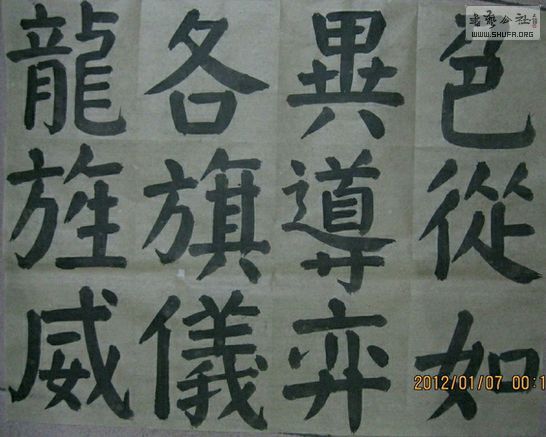 書藝公社
WWW.SHUFA.ORG
龍各異色
旌旗導從
威儀弈如
2012/01/07 00:1